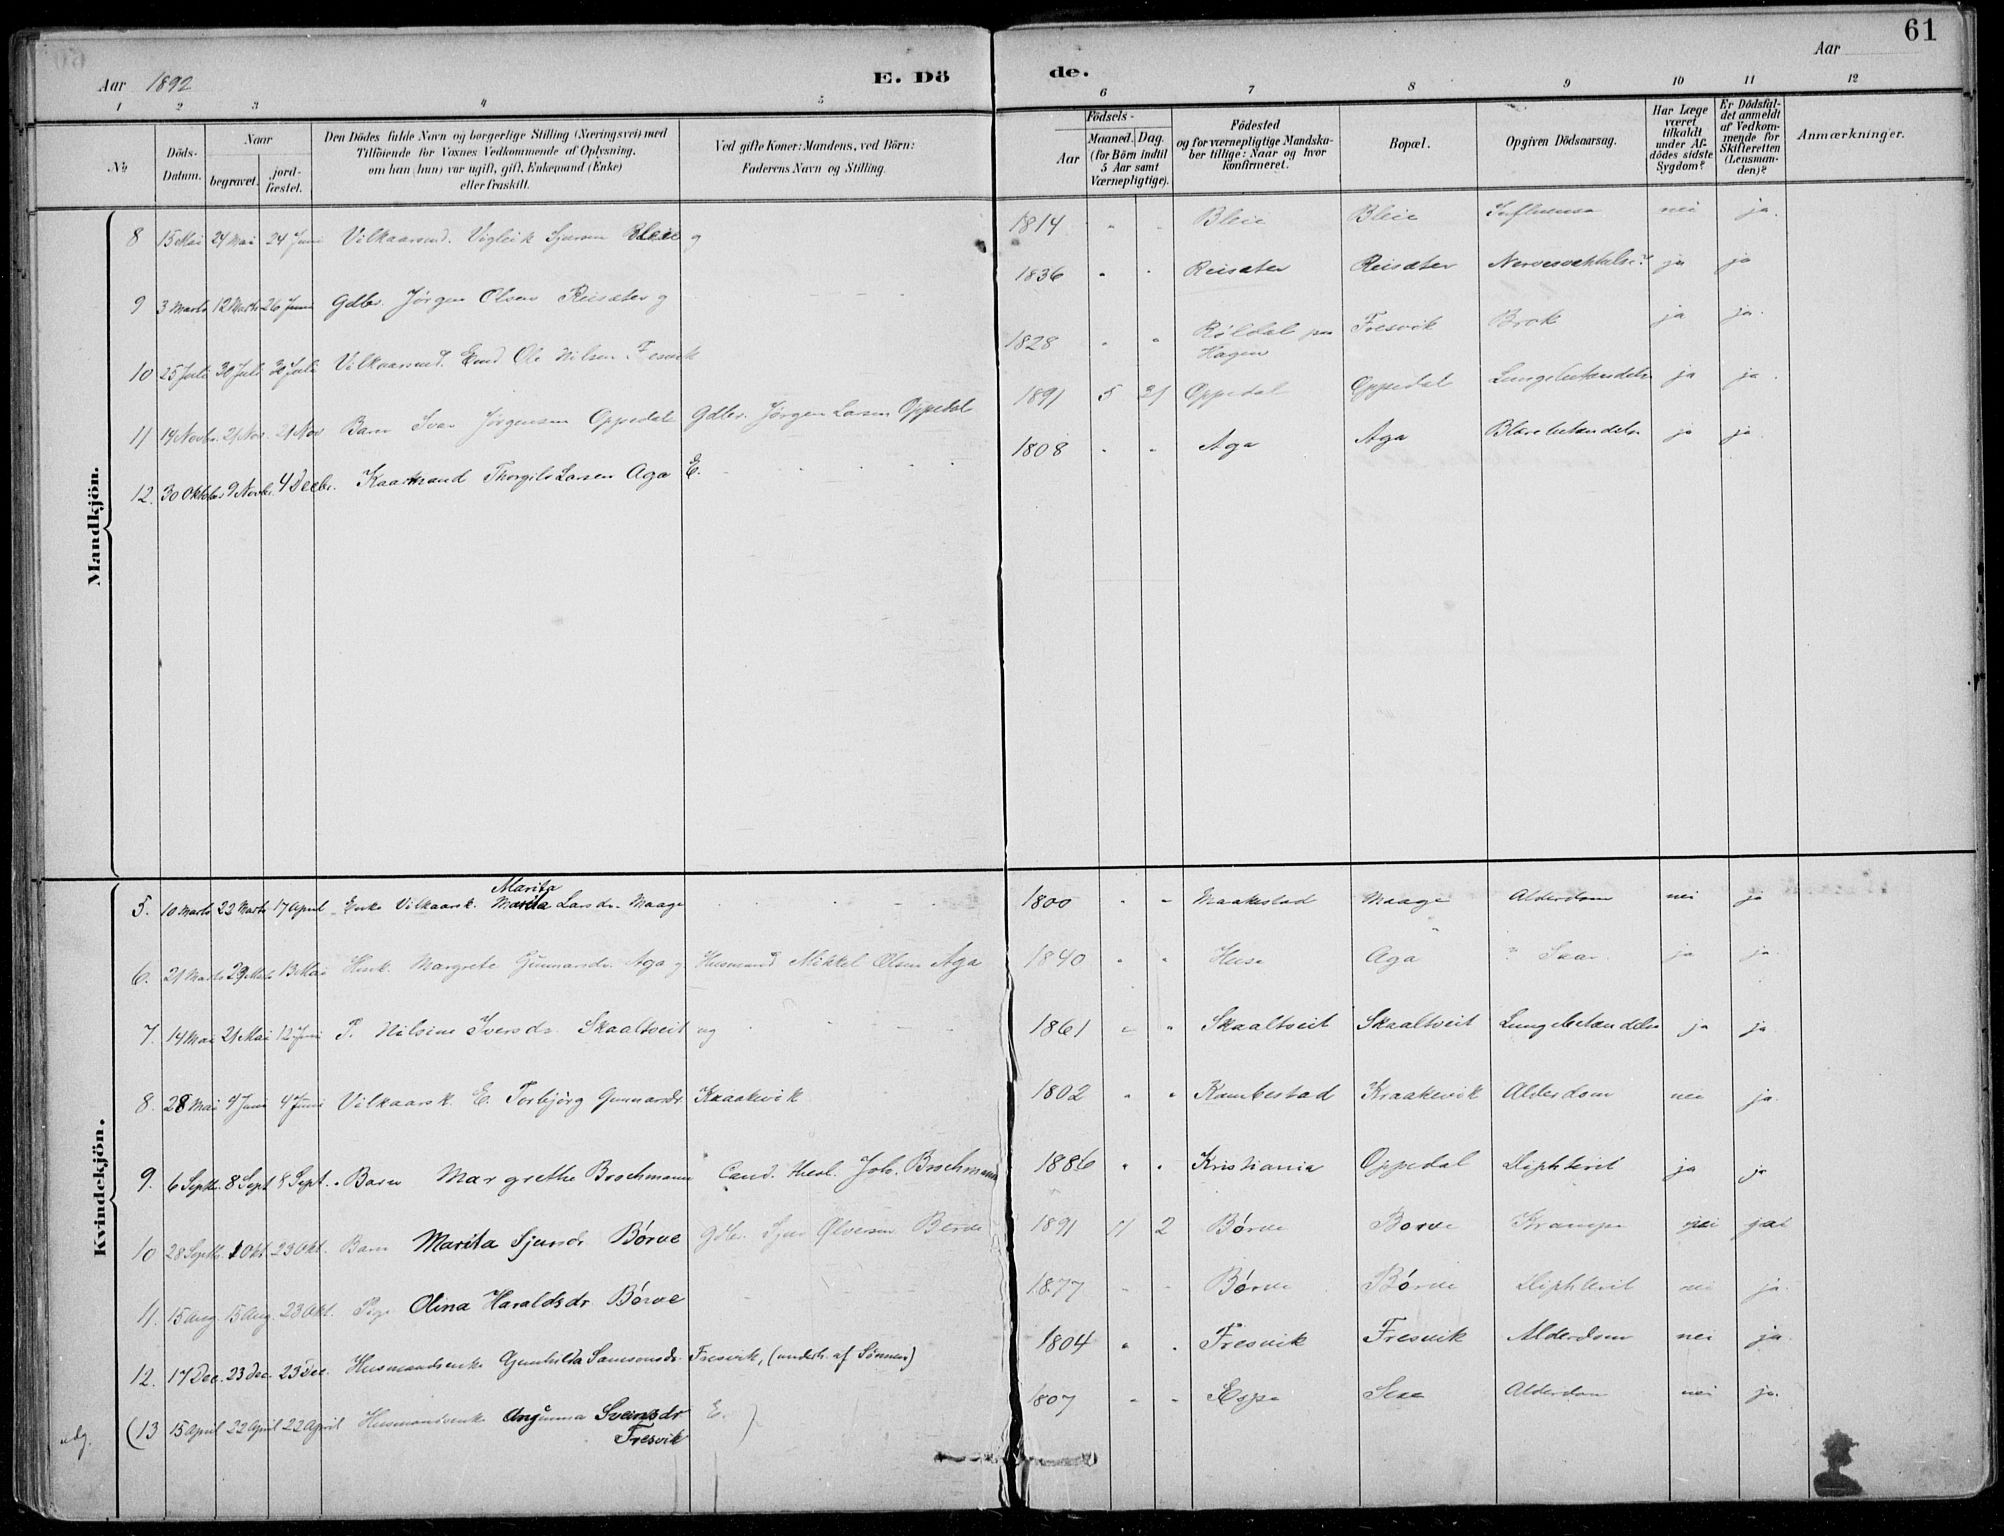 61
Aar 1892
E. Dö de.
Aar
1 2 3 4 5 6 7 8 9 10 11 12
No
Döds-Datum.
Naar
begravet.
jord-fæstet.
Den Dödes fulde Navn og borgerlige Stilling (Næringsvei) med
Tilföiende for Voxnes Vedkommende af Oplysning,
om han (hun) var ugift, gift, Enkemand (Enke)
eller fraskilt.
Ved gifte Koner: Mandens, ved Börn:
Faderens Navn og Stilling.
Födsels-
Aar
Maaned. Dag.
(for Börn indtil
5 Aar samt
Værnepligtige).
Födested
og for værnepligtige Mandska-
ber tillige: Naar og hvor
konfirmeret.
Bopæl.
Opgiven Dödsaarsag.
Har Læge
været
tilkaldt
under Af-
dödes sidste
Sygdom?
Er Dödsfal-
det anmeldt
af Vedkom-
mende for
Skifteretten
(Lensman-
den)?
Anmærkninger.
Mandkjön.
8 15 Mai 24 Mai 24 Juni Vilkaarsmd. Vigleik Sjursen Bleie g 1814 " " Bleie Bleie Influensa nei ja.
9 3 Marts 12 Marts 26 Juni Gdbr. Jørgen Olsen Reisæter g 1836 " " Reisæter Reisæter ja ja
10 25 Juli 30 Juli 30 Juli Vilkaarsmd. Emd Ole Nilsen Fresvik 1828 " " Røldal paa Hagen Fresvik Brok ja ja.
11 14 Novbr. 21 Nov. 21 Nov Barn Ivar Jørgensen Oppedal Gdbr. Jørgen Larsen Oppedal 1891 5 21 Oppedal Oppedal Lungebetændelse ja ja.
12. 30 Oktbr 9 Novbr. 4 Decbr. Kaarmand Thorgils Larsen Aga E. 1808 " " Aga Aga Blærebetændelse ja ja.
Kvindekjön.
5. 10 Marts 22 Marts 17 April Enke Vilkaarsk. Marita Marita Larsdr. Maage 1800 " " Maakestad Maage Alderdom nei ja
6. 21 Marts 29 Mts 13 Mai Husk. Margrete Gunnarsdr. Aga g Husmand Mikkel Olsen Aga 1840 " " Huse Aga ? Saar. ja ja.
7. 14 Mai 21 Mai 12 Juni P. Nilsine Iversdr. Skaaltveit ug 1861 " " Skaaltveit Skaaltveit Lungebetændelse ja ja.
8. 28 Mai 4 Juni 4 Juni Vilkaarsk. E. Torbjørg Gunnarsdr. Kraakevik 1802 " " Kambestad Kraakevik Alderdom nei ja.
9. 6 Septbr. 8 Sept 8 Sept. Barn Margrethe Brochmann Cand. theol. Joh. Brochmann 1886 " " Kristiania Oppedal Diphterit ja ja
10 28 Septbr. 1 Okt. 23 Okt. Barn Marita Sjursdr Børve Gdbr. Sjur Olversen Børve 1891 11 2 Børve Børve Krampe nei ja
11. 15 Aug. 15 Aug. 23 Okt. Pige Olina Haraldsdr Børve 1877 " " Børve Børve Diphterit nei ja.
12. 17 Dec. 23 Dec. 23 Dec. Husmandsenke Gunhilda Samsonsdr. Fresvik, (underh. af Sønnen) 1804 " " Fresvik Fresvik Alderdom nei ja.
(13 15 April 22 April 22 April Husmandsenke Angunna Sveinsdr Fresvik E. ) 1807 " " Espe Sexe Alderdom nei ja.